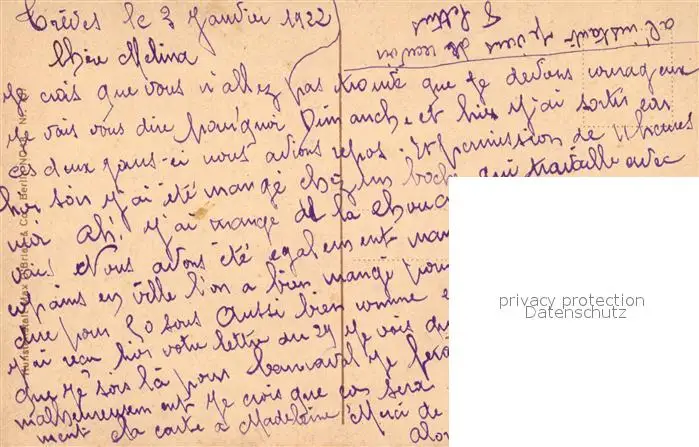 Trèves le 3 Janvier 1922
Chère Melina
Je crois que vous n'allez pas trouvé que je deviens courageux
je vais vous dire pourquoi Dimanche et hier j'ai sortis car
ces deux jours-ci nous avions repos. Et permission de 11 heures
hier soir j'ai été mangé chez un boche qui travaille avec
moi Ah! j'ai mangé de la chouc
vais Nous avons été également man
copains en ville l'on a bien mangé pour
que pour 50 sous Aussi bien comme
j'ai reçu hier votre lettre du 29 Je vois
que je sois là pour carnaval Je
malheureusement Je crois que ça sera
ment la carte a Madeleine Merci de
Alo
a l'instant je viens de
8 lettres
Max O'Brien & Co. Berlin
privacy protection
Datenschutz